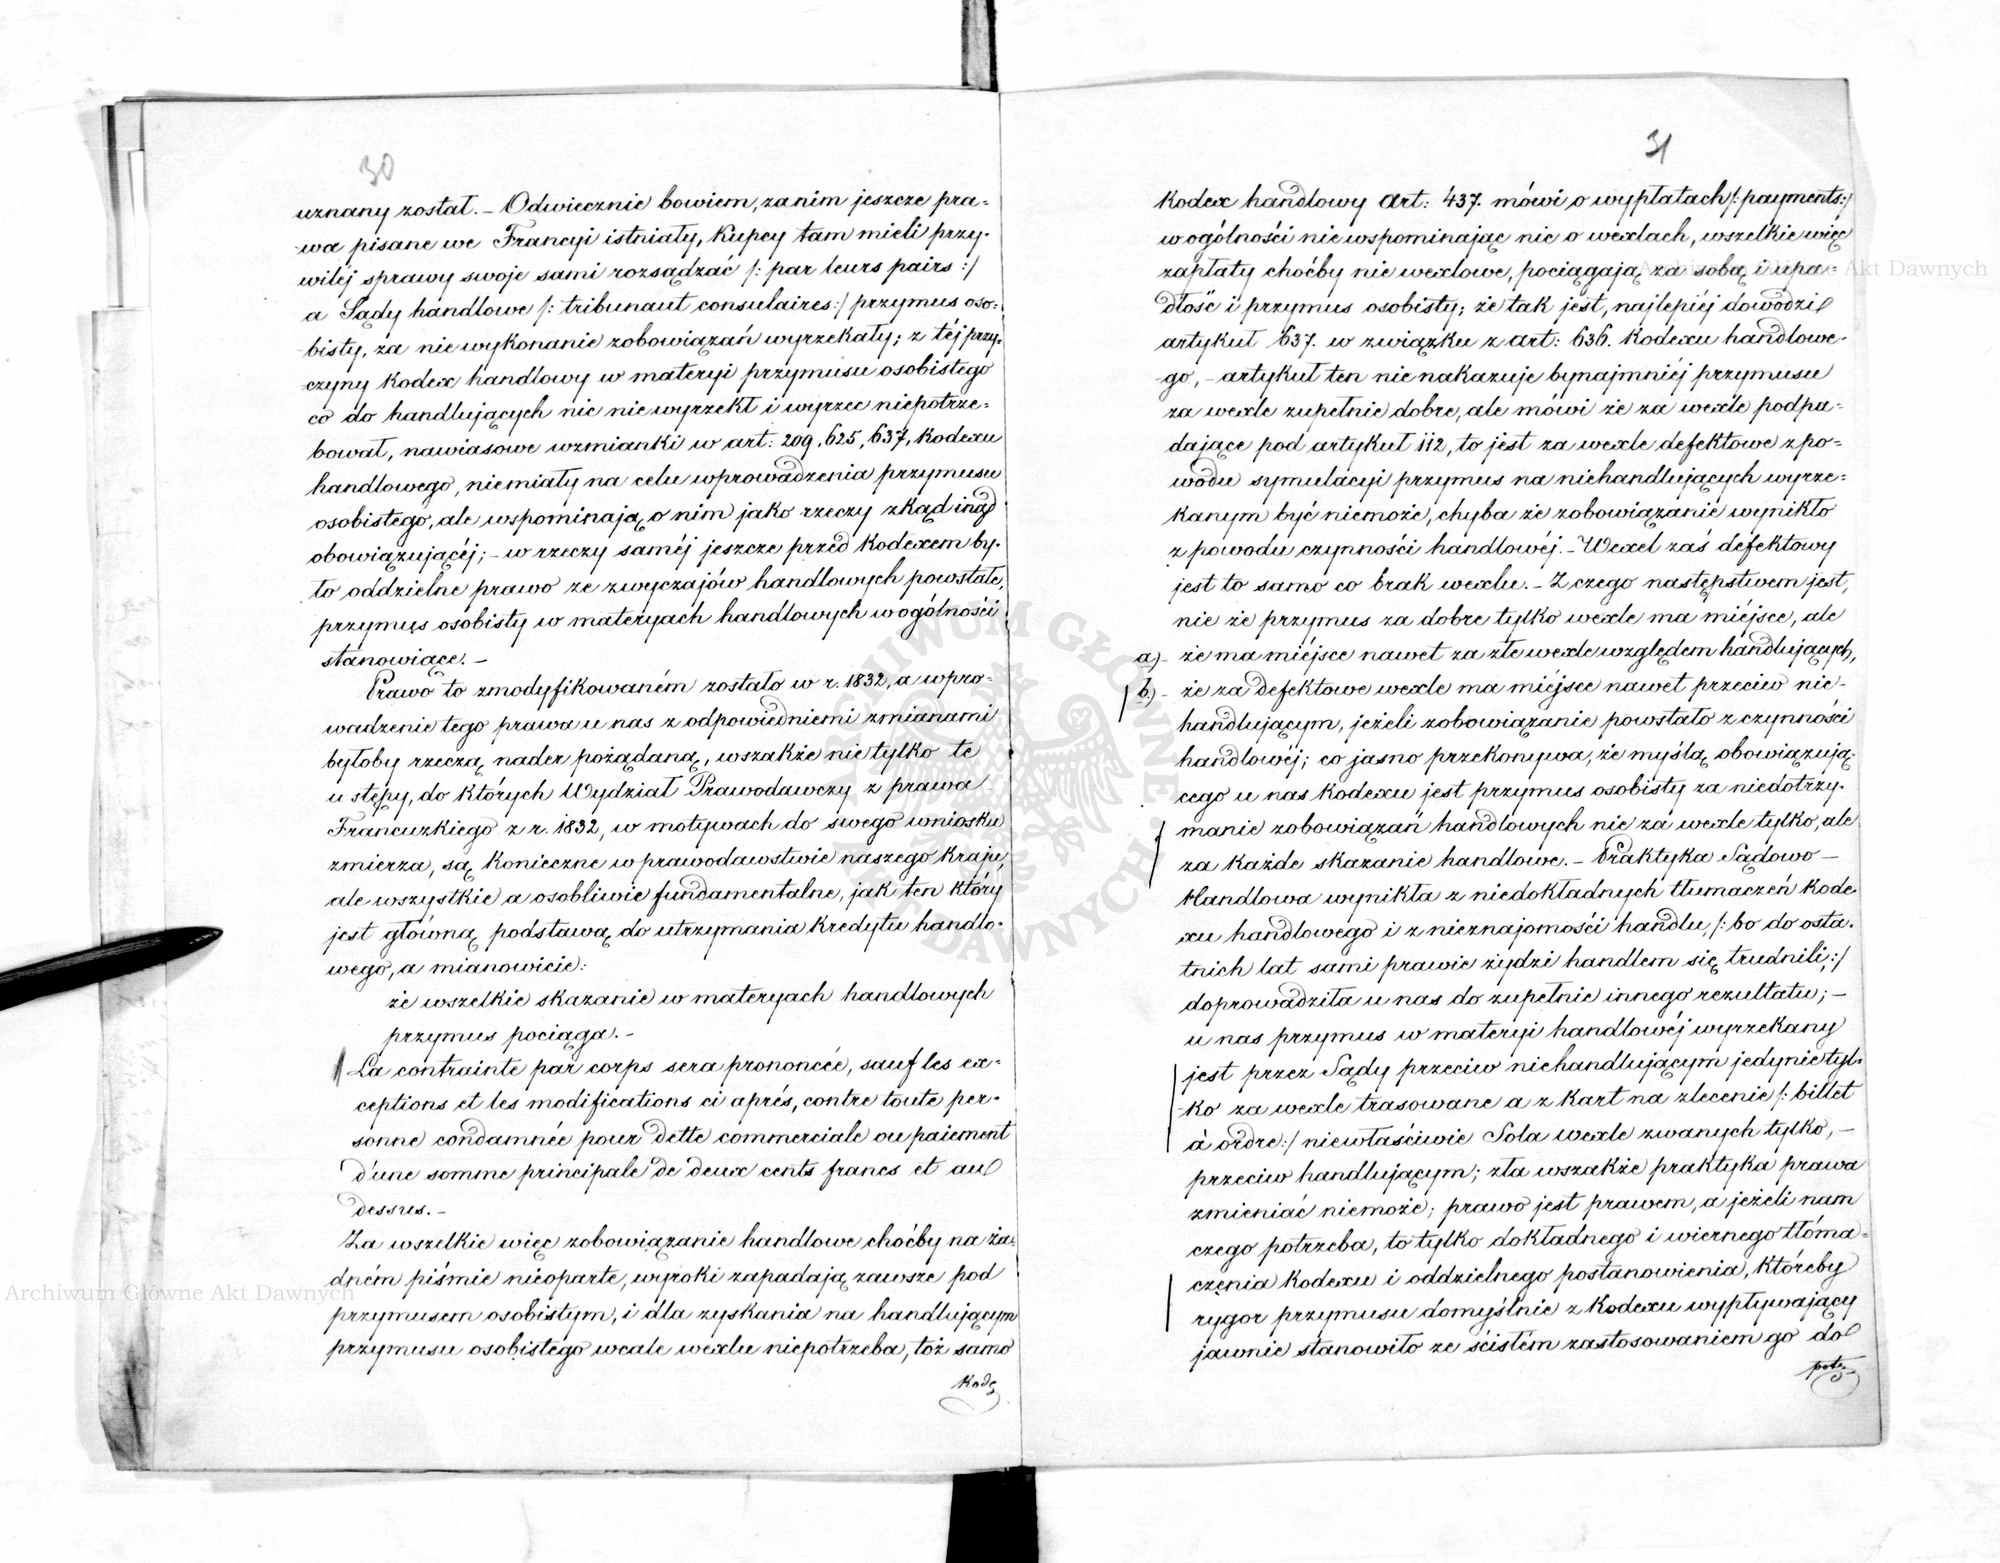 30
uznany został. – Odwiecznie bowiem, zanim jeszcze pra-
wa pisane we Francyi istniały, Kupcy tam mieli przy-
wilej sprawy swoje sami rozsądzać /: par leurs pairs :/
a Sądy handlowe /: tribunaut consulaires:/ przymus oso-
bisty, za niewykonanie zobowiązań wyrzekały; z téj przy-
czyny Kodex handlowy w materyi przymusu osobistego
co do handlujących nic nie wyrzekł i wyrzec niepotrze-
bował, nawiasowe wzmianki w art: 209, 625, 637, Kodexu
handlowego, niemiały na celu wprowadzenia przymusu
osobistego, ale wspominają o nim jako rzeczy zkąd inąd
obowiązującéj; – w rzeczy saméj jeszcze przed Kodexem by-
ło oddzielne prawo ze zwyczajów handlowych powstałe,
przymus osobisty w materyach handlowych w ogólności
stanowiące. –
Prawo to zmodyfikowaném zostało w r. 1832, a wpro-
wadzenie tego prawa u nas z odpowiedniemi zmianami
byłoby rzeczą nader pożądaną, wszakże nie tylko te
ustępy, do których Wydział Prawodawczy z prawa
Francuzkiego z r. 1832, w motywach do swego wniosku
zmierza, są konieczne w prawodawstwie naszego kraju,
ale wszystkie a osobliwie fundamentalne, jak ten który
jest główną podstawą do utrzymania kredytu handlo-
wego, a mianowicie:
że wszelkie skazanie w materyach handlowych
przymus pociąga. –
La contrainte par corps sera prononcée, sauf les ex-
ceptions et les modifications ci aprés, contre toute per-
sonne condamnée pour dette commerciale ou paiement
d'une somme principale de deux cents francs et au
dessus. –
Za wszelkie więc zobowiązanie handlowe choćby na ża-
dném piśmie nieoparte, wyroki zapadają zawsze pod
przymusem osobistym, i dla zyskania na handlującym
przymusu osobistego wcale wexlu niepotrzeba, toż samo
Kode
31
Kodex handlowy art: 437. mówi o wypłatach /: payments:/
w ogólności nie wspominając nic o wexlach, wszelkie więc
zapłaty choćby nie wexlowe, pociągają za sobą i upa-
dłość i przymus osobisty; że tak jest, najlepiéj dowodzi
artykuł 637. w związku z art: 636. Kodexu handlowe-
go, – artykuł ten nie nakazuje bynajmniéj przymusu
za wexle zupełnie dobre, ale mówi że za wexle podpa-
dające pod artykuł 112, to jest za wexle defektowe z po-
wodu symulacyi przymus na niehandlujących wyrze-
kanym być niemoże, chyba że zobowiązanie wynikło
z powodu czynności handlowéj. – Wexel zaś defektowy
jest to samo co brak wexlu. – Z czego następstwem jest,
nie że przymus za dobre tylko wexle ma miéjsce, ale
a) – że ma miéjsce nawet za złe wexle względem handlujących,
b) – że za defektowe wexle ma miéjsce nawet przeciw nie-
handlującym, jeżeli zobowiązanie powstało z czynności
handlowéj; co jasno przekonywa, że myślą obowiązują-
cego u nas Kodexu jest przymus osobisty za niedotrzy-
manie zobowiązań handlowych nie za wexle tylko, ale
za każde skazanie handlowe. – Praktyka Sądowo –
Handlowa wynikła z niedokładnych tłumaczeń Kode-
xu handlowego i z nieznajomości handlu, /: bo do osta-
tnich lat sami prawie żydzi handlem się trudnili:/
doprowadziła u nas do zupełnie innego rezultatu; –
u nas przymus w materyi handlowéj wyrzekany
jest przez Sądy przeciw niehandlującym jedynie tyl-
ko za wexle trasowane a z Kart na zlecenie /: billet
à ordre:/ niewłaściwie Sola wexle zwanych tylko, –
przeciw handlującym; zła wszakże praktyka prawa
zmieniać niemoże; prawo jest prawem, a jeżeli nam
czego potrzeba, to tylko dokładnego i wiernego tłóma-
czenia Kodexu i oddzielnego postanowienia, któreby
rygor przymusu domyślnie z Kodexu wypływający
jawnie stanowiło ze ścisłém zastosowaniem go do
potr
Archiwum Główne Akt Dawnych
Archiwum Główne Akt Dawnych
ARCHIWUM GŁÓWNE AKT DAWNYCH